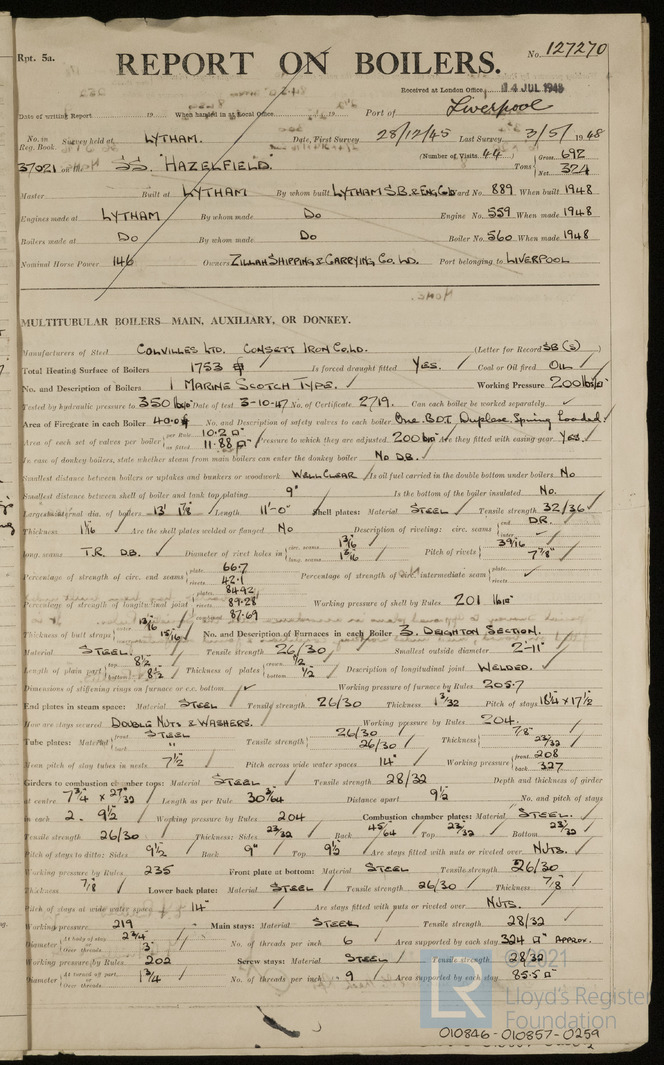 Rpt. 5a.
No. 127270
REPORT ON BOILERS.
Received at London Office 14 JUL 1948
Date of writing Report 19 When handed in at Local Office 19 Port of Liverpool
No. in Reg. Book. Survey held at LYTHAM. Date, First Survey 28/12/45 Last Survey 3/5/1948
37021 on the SS. "HAZELFIELD." (Number of Visits 44) Tons Gross 692 Net 324
Master Built at LYTHAM By whom built LYTHAM S.B. & ENG. Co. Yard No. 889 When built 1948
Engines made at LYTHAM By whom made Do Engine No. 559 When made 1948
Boilers made at Do By whom made Do Boiler No. 560 When made 1948
Nominal Horse Power 146 Owners ZILLAH SHIPPING & CARRYING Co. LD. Port belonging to LIVERPOOL
MULTITUBULAR BOILERS MAIN, AUXILIARY, OR DONKEY.
Manufacturers of Steel COLVILLES LTD. CONSETT IRON CO. LD. (Letter for Record SB (S))
Total Heating Surface of Boilers 1753 Is forced draught fitted YES. Coal or Oil fired OIL
No. and Description of Boilers 1 MARINE SCOTCH TYPE. Working Pressure 200 lbs/□"
Tested by hydraulic pressure to 350 lbs/□" Date of test 3-10-47 No. of Certificate 2719. Can each boiler be worked separately
Area of Firegrate in each Boiler 40.0 No. and Description of safety valves to each boiler One B.O.T. Duplex Spring Loaded.
Area of each set of valves per boiler per Rule 10.2 □" as fitted 11.88 □" Pressure to which they are adjusted 200 lb/□" Are they fitted with easing gear YES.
In case of donkey boilers, state whether steam from main boilers can enter the donkey boiler No D.B.
Smallest distance between boilers or uptakes and bunkers or woodwork WELL CLEAR Is oil fuel carried in the double bottom under boilers No
Smallest distance between shell of boiler and tank top plating 9" Is the bottom of the boiler insulated No.
Largest internal dia. of boilers 13' 1⅞ Length 11'-0" Shell plates: Material STEEL Tensile strength 32/36
Thickness 1 1/16 Are the shell plates welded or flanged No Description of riveting: circ. seams end D.R. inter.
long. seams T.R. D.B. Diameter of rivet holes in circ. seams 1 3/16 long. seams 1 3/16 Pitch of rivets 3 9/16 7⅞"
Percentage of strength of circ. end seams plate 66.7 rivets 42.1 Percentage of strength of circ. intermediate seam plate rivets
Percentage of strength of longitudinal joint plate 84.92 rivets 89.28 combined 87.69 Working pressure of shell by Rules 201 lb/□"
Thickness of butt straps 13/16 15/16 No. and Description of Furnaces in each Boiler 3. DEIGHTON SECTION.
Material STEEL. Tensile strength 26/30 Smallest outside diameter 2'-11"
Length of plain part top 8½ bottom 8½ Thickness of plates crown ½ bottom ½ Description of longitudinal joint WELDED.
Dimensions of stiffening rings on furnace or c.c. bottom Working pressure of furnace by Rules 205.7
End plates in steam space: Material STEEL Tensile strength 26/30 Thickness 1 3/32 Pitch of stays 18¼ x 17½
How are stays secured DOUBLE NUTS & WASHERS. Working pressure by Rules 204.
Tube plates: Material front STEEL back " Tensile strength 26/30 26/30 Thickness 7/8" 23/32
Mean pitch of stay tubes in nests 7½" Pitch across wide water spaces 14" Working pressure front 208 back 327
Girders to combustion chamber tops: Material STEEL Tensile strength 28/32 Depth and thickness of girder
at centre 7¾" x 27/32 Length as per Rule 30 3/64 Distance apart 9½ No. and pitch of stays
in each 2. 9½ Working pressure by Rules 204 Combustion chamber plates: Material STEEL.
Tensile strength 26/30 Thickness: Sides 23/32 Back 45/64 Top 23/32 Bottom 23/32
Pitch of stays to ditto: Sides 9½ Back 9" Top 9½ Are stays fitted with nuts or riveted over NUTS.
Working pressure by Rules 235 Front plate at bottom: Material STEEL Tensile strength 26/30
Thickness 7/8 Lower back plate: Material STEEL Tensile strength 26/30 Thickness 7/8
Pitch of stays at wide water space 14" Are stays fitted with nuts or riveted over NUTS.
Working pressure 219 Main stays: Material STEEL Tensile strength 28/32
Diameter At body of stay 2¾" Over threads 3" No. of threads per inch 6 Area supported by each stay 324 □" APPROX.
Working pressure by Rules 202 Screw stays: Material STEEL Tensile strength 28/32
Diameter At turned off part Over threads 1¾ No. of threads per inch 9 Area supported by each stay 85.5 □"
© 2021
LR Lloyd's Register
Foundation
010846-010857-0259